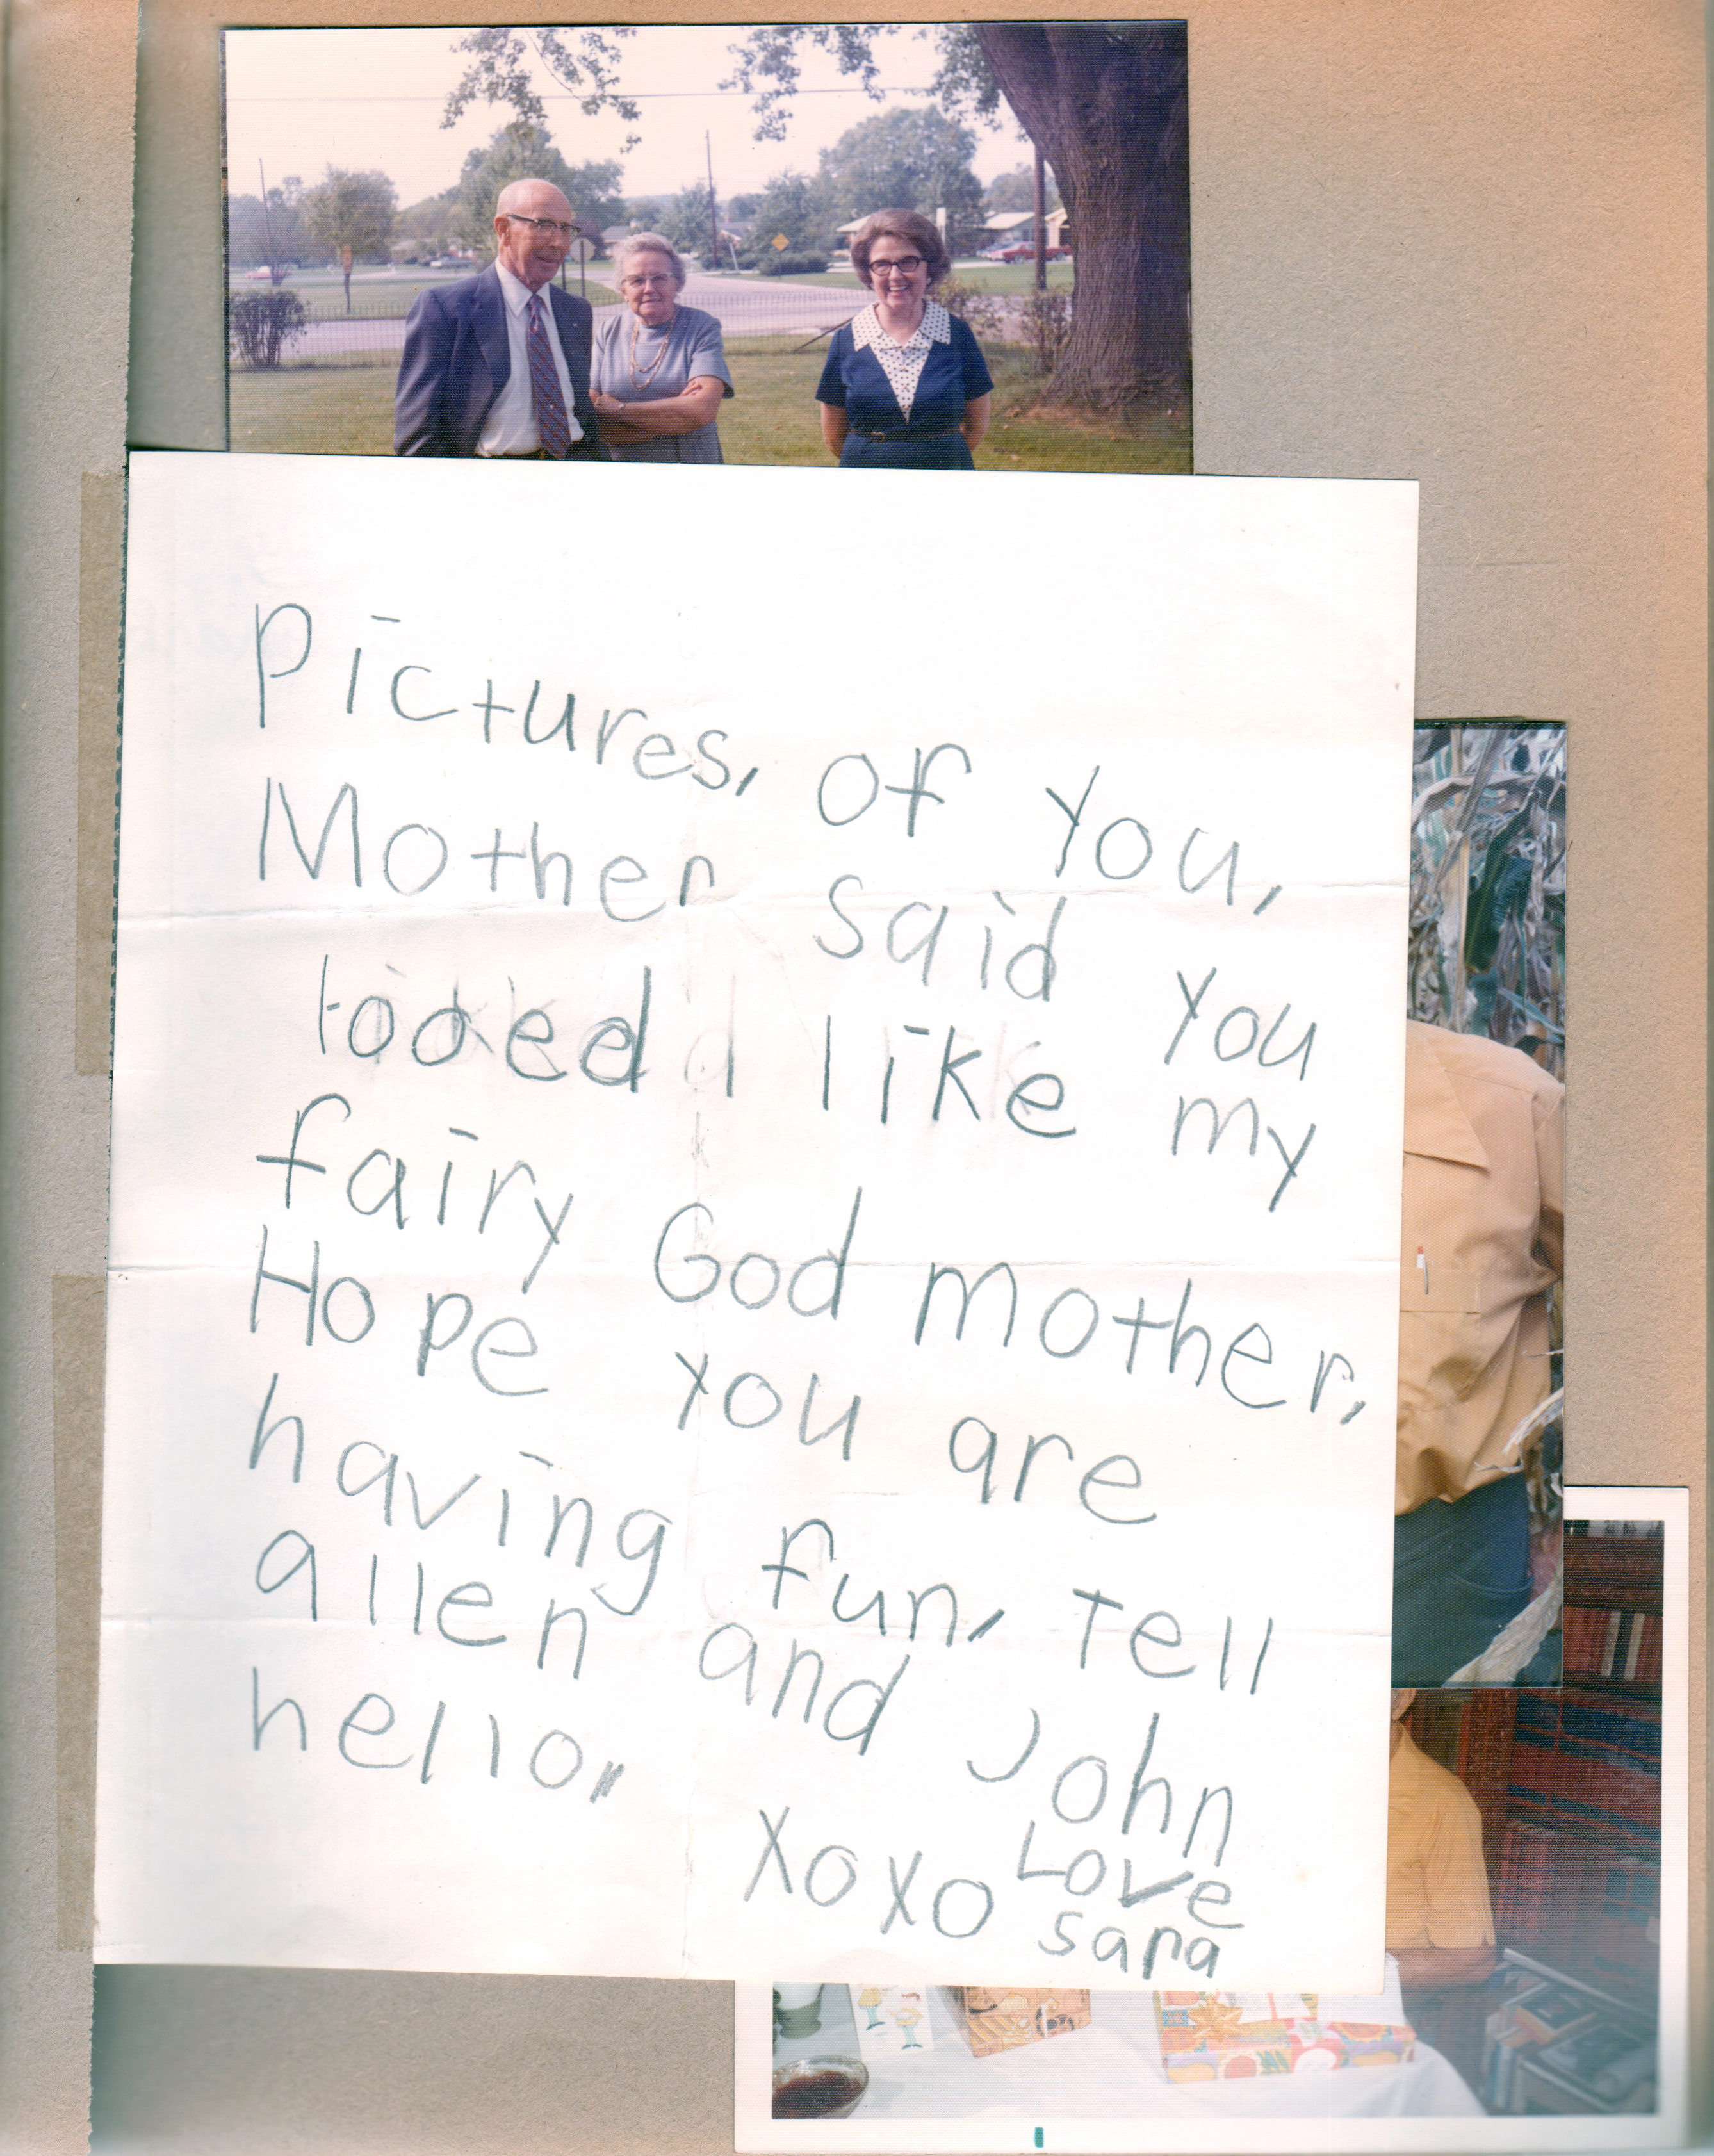 Pictures, of you,
Mother said you
looked like my
fairy God mother,
Hope you are
having fun, Tell
allen and John
hello,,
XoXo Love
sara